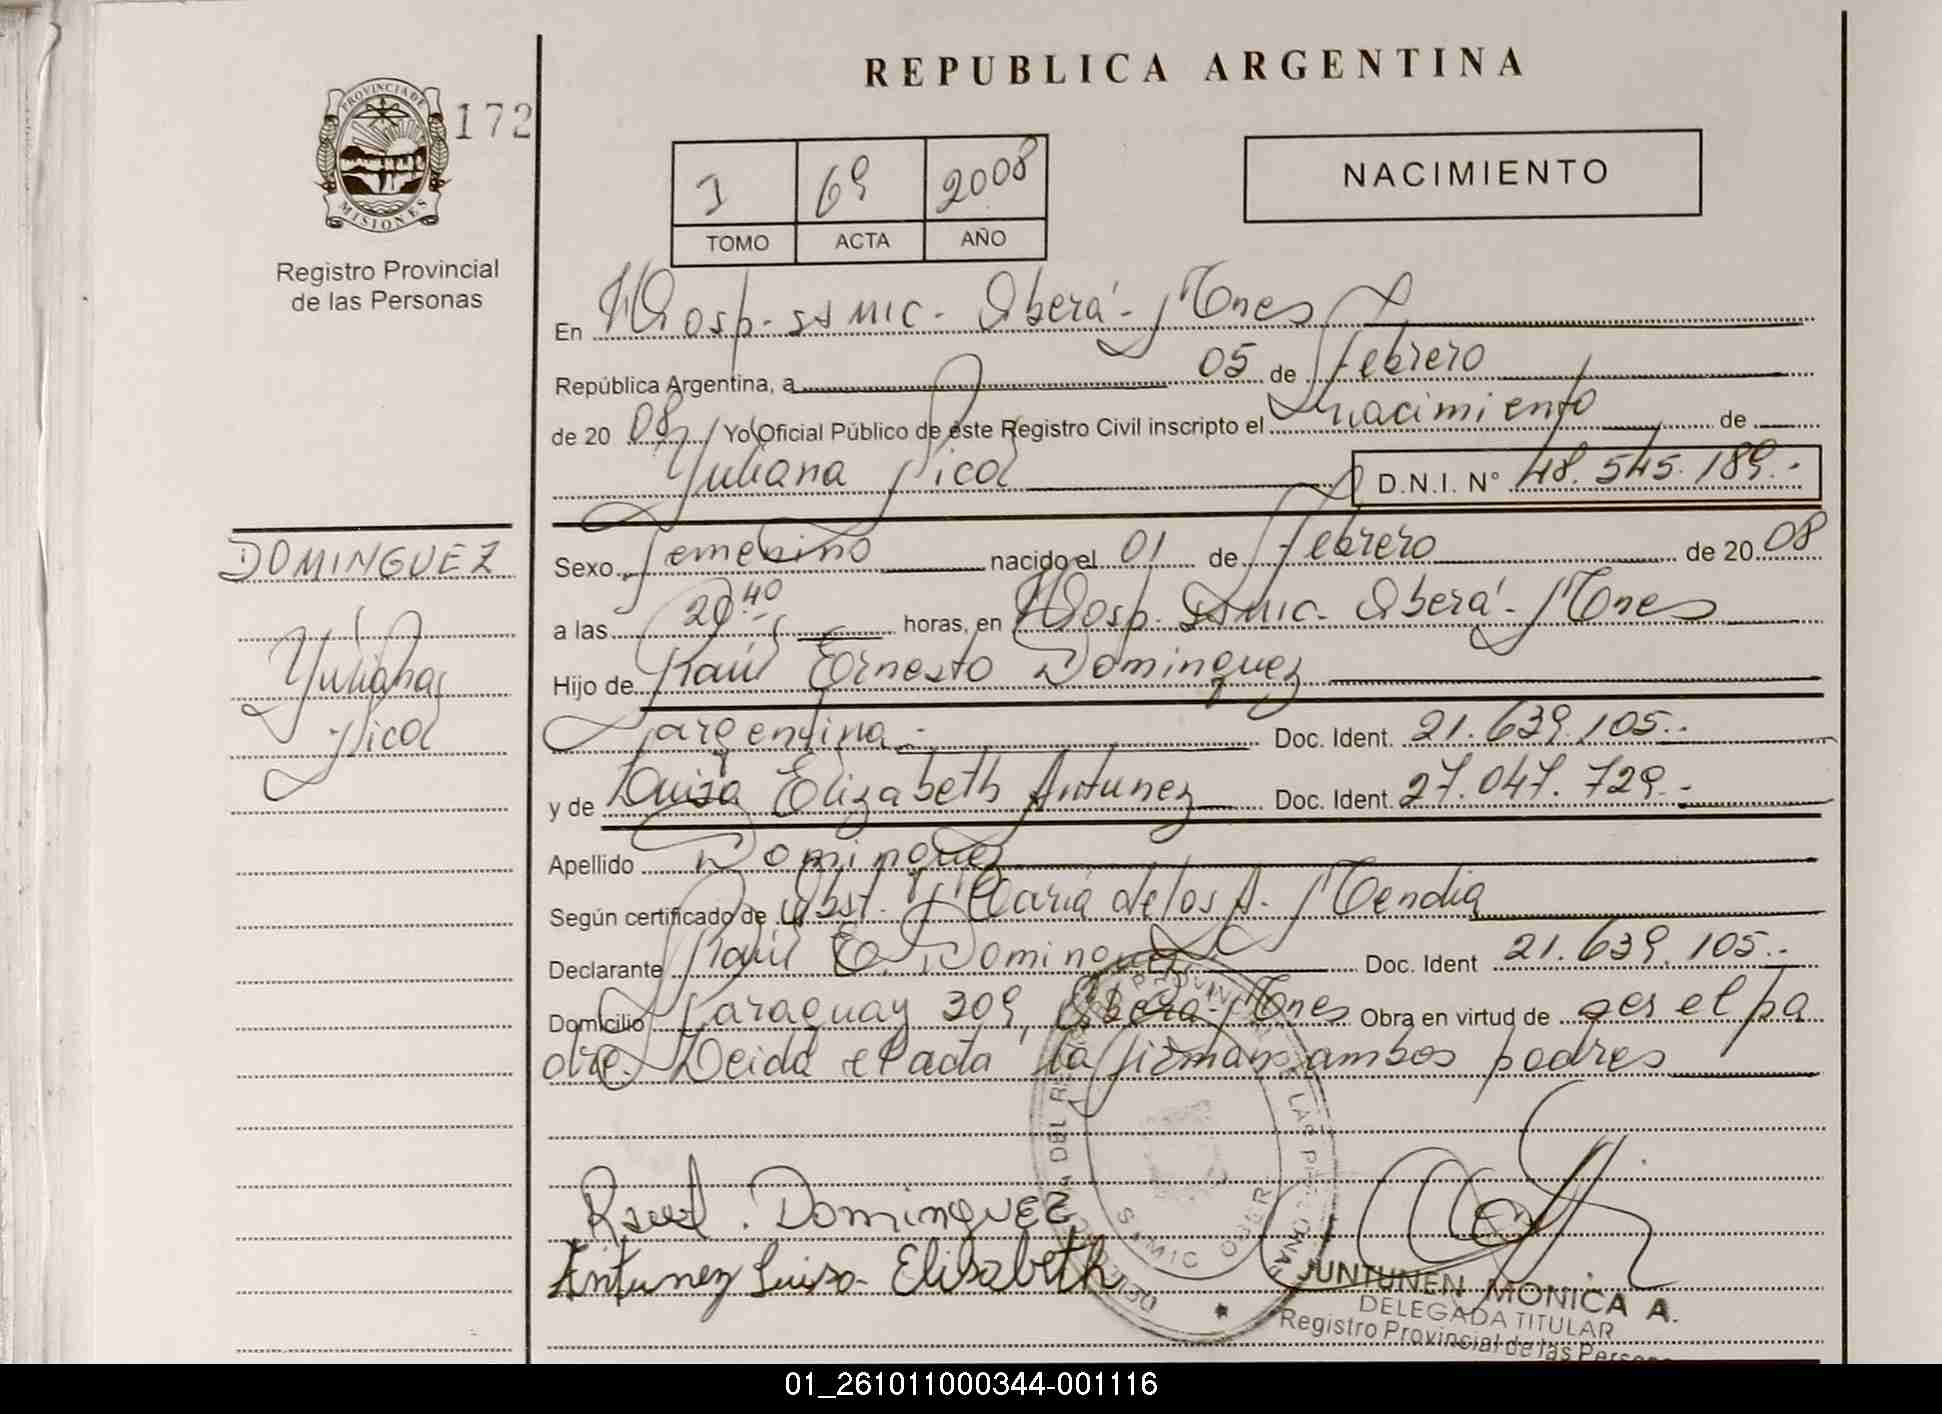 REPUBLICA ARGENTINA
PROVINCIA DE
MISIONES
172
Registro Provincial
de las Personas
I 69 2008
TOMO ACTA AÑO
NACIMIENTO
En Hosp. SAMIC - Oberá - Mnes
República Argentina, a 05 de febrero
de 20 08 Yo Oficial Público de este Registro Civil inscripto el nacimiento de
Yuliana Nicol D.N.I. N° 48.545.189.-
DOMINGUEZ
Yuliana
Nicol
Sexo femenino nacido el 01 de febrero de 20 08
a las 20 40 horas, en Hosp. SAMIC - Oberá - Mnes
Hijo de Raúl Ernesto Dominguez
argentina.- Doc. Ident. 21.639.105.-
y de Luisa Elizabeth Antunez Doc. Ident. 27.047.729.-
Apellido Dominguez
Según certificado de Obst. María de los A. Mendia
Declarante Raúl E. Dominguez Doc. Ident 21.639.105.-
Domicilio Paraguay 309, Oberá - Mnes Obra en virtud de ser el pa
dre. Leida el acta la firman ambos padres
Raul. Dominguez
Antunez Luisa Elisabeth
SAMIC OBER
JUNTUNEN MONICA A.
DELEGADA TITULAR
Registro Provincial de las Perso
01_261011000344-001116